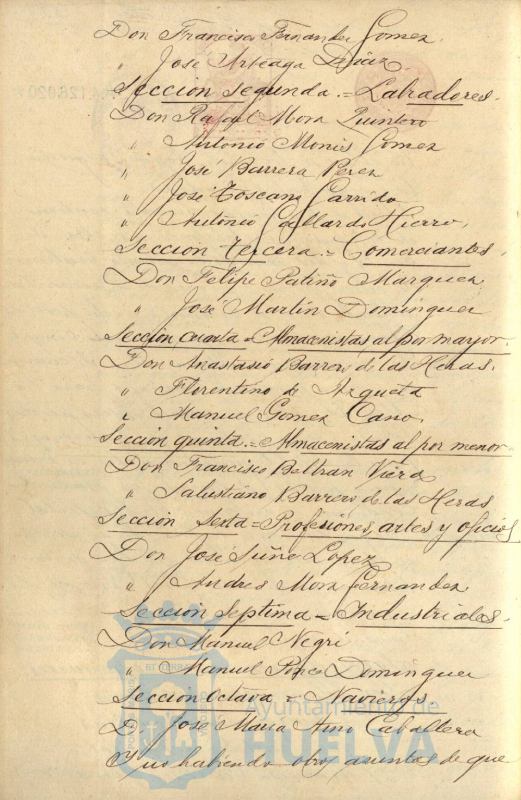 Don Francisco Fernandez Gomez.
" José Arteaga Diaz.
Sección segunda.=Labradores.
Don Rafael Mora Quintero
" Antonio Monis Gomez
" José Barrera Perez
" José Toscano Garrido
" Antonio Gallardo Hierro.
Seccion tercera.=Comerciantes.
Don Felipe Patiño Marquez
" José Martín Dominguez
Sección cuarta=Almacenistas al por mayor.
Don Anastasio Barrero de las Heras.
" Florentino de Azqueta
" Manuel Gomez Cano.
Sección quinta.=Almacenistas al por menor=
Don Francisco Beltran Viera
" Salustiano Barrero de las Heras
Sección Sexta=Profesiones, artes y oficios
Don José Suñe Lopez
" Andres Mora Fernandez
Sección Septima=Industriales.
Don Manuel Negri
" Manuel Ponce Dominguez
Seccion Octava=Navieros
D. José Maria Amo Caballero
Y no habiendo otros asuntos de que
Ayuntamiento de
HUELVA